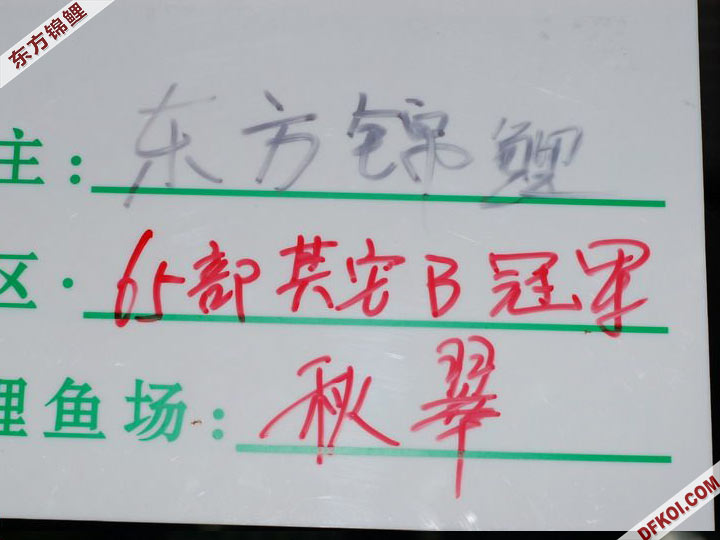 东方锦鲤
主：东方锦鲤
区：65部其它B冠军
鲤鱼场：秋翠
DFKOI.COM